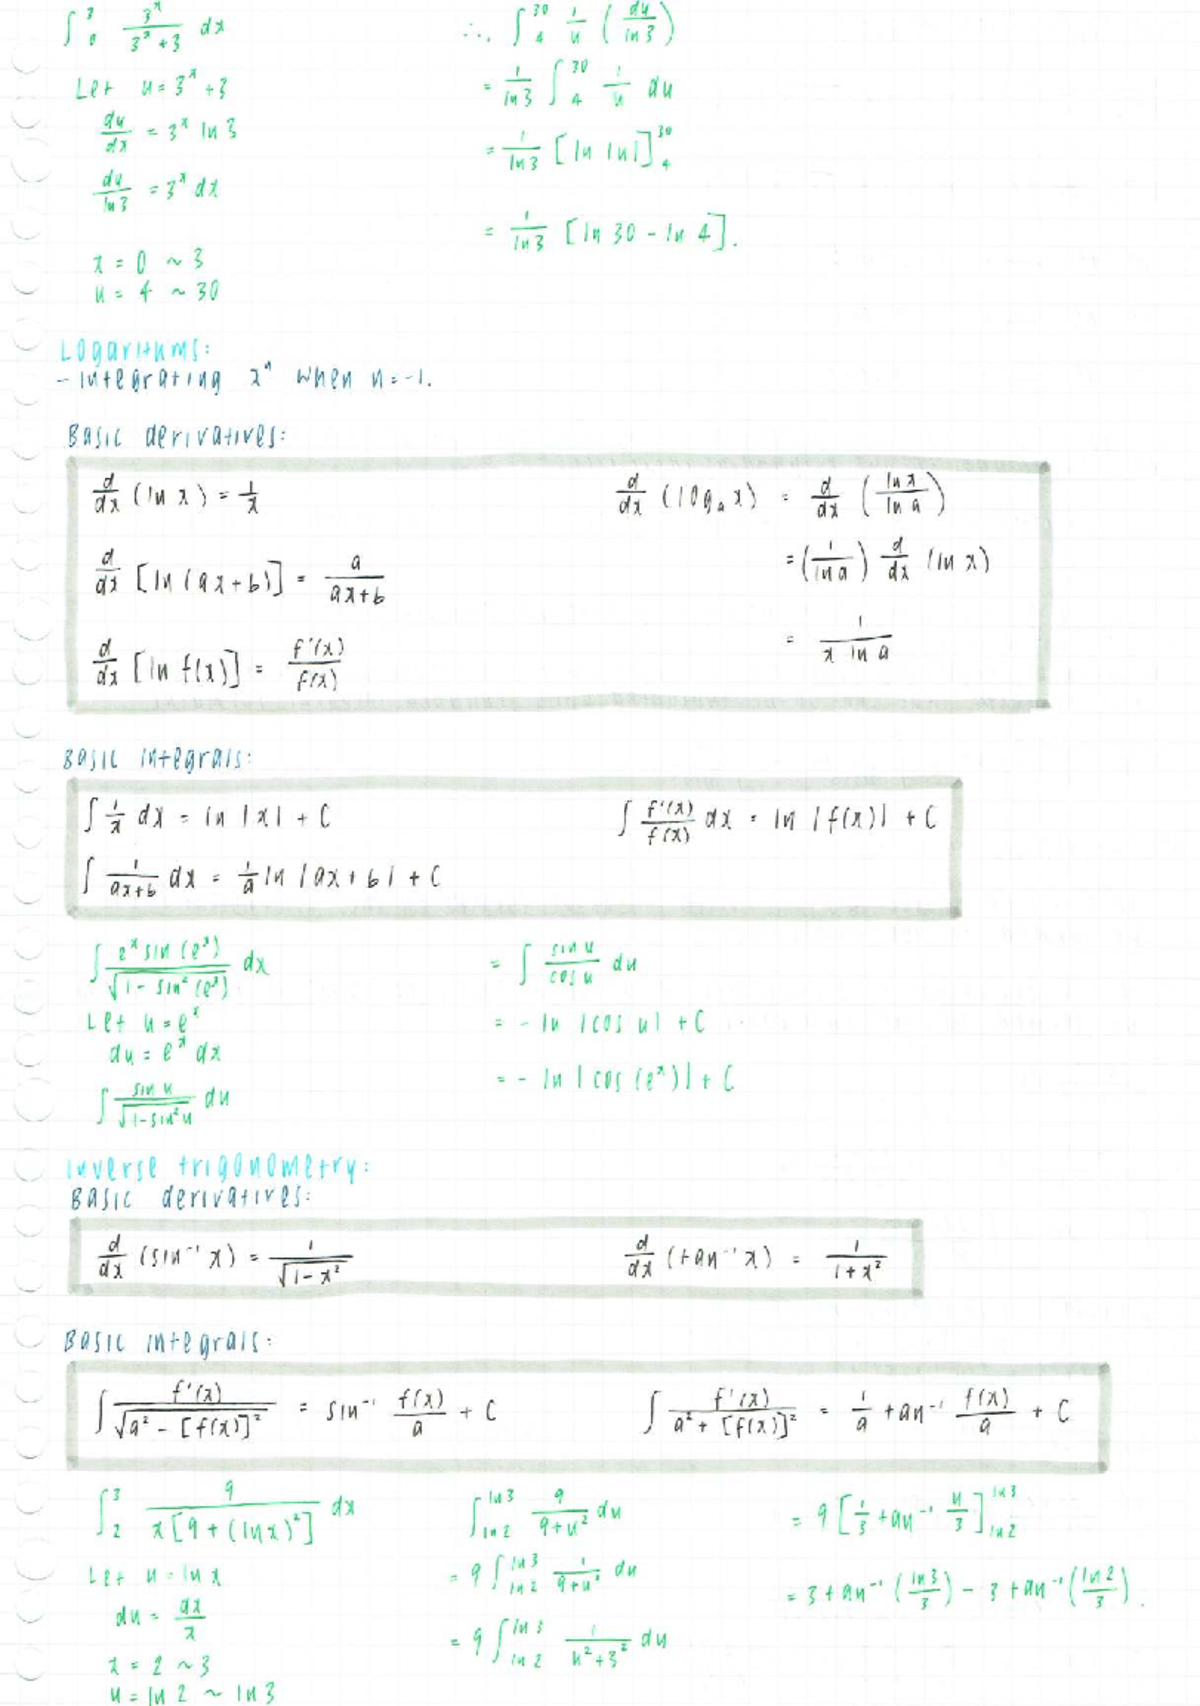 ∫₀³ 3ˣ/(3ˣ+3) dx
Let u = 3ˣ + 3
du/dx = 3ˣ ln 3
du/ln 3 = 3ˣ dx
x = 0 ~ 3
u = 4 ~ 30
∴ ∫₄³⁰ 1/u (du/ln 3)
= 1/ln 3 ∫₄³⁰ 1/u du
= 1/ln 3 [ln |u|]₄³⁰
= 1/ln 3 [ln 30 - ln 4].
Logarithms:
- Integrating xⁿ when n = -1.
Basic derivatives:
d/dx (ln x) = 1/x
d/dx [ln (ax + b)] = a/(ax+b)
d/dx [ln f(x)] = f'(x)/f(x)
d/dx (logₐ x) = d/dx (ln x/ln a)
= (1/ln a) d/dx (ln x)
= 1/(x ln a)
Basic integrals:
∫ 1/x dx = ln |x| + C
∫ 1/(ax+b) dx = 1/a ln |ax + b| + C
∫ f'(x)/f(x) dx = ln |f(x)| + C
∫ eˣ sin (eˣ)/√(1 - sin² (eˣ)) dx
Let u = eˣ
du = eˣ dx
∫ sin u/√(1-sin² u) du
= ∫ sin u/cos u du
= - ln |cos u| + C
= - ln |cos (eˣ)| + C
Inverse trigonometry:
Basic derivatives:
d/dx (sin⁻¹ x) = 1/√(1-x²)
d/dx (tan⁻¹ x) = 1/(1+x²)
Basic integrals:
∫ f'(x)/√(a² - [f(x)]²) = sin⁻¹ f(x)/a + C
∫ f'(x)/(a² + [f(x)]²) = 1/a tan⁻¹ f(x)/a + C
∫₂³ 9/(x[9 + (ln x)²]) dx
Let u = ln x
du = dx/x
x = 2 ~ 3
u = ln 2 ~ ln 3
∫_{ln 2}^{ln 3} 9/(9+u²) du
= 9 ∫_{ln 2}^{ln 3} 1/(9+u²) du
= 9 ∫_{ln 2}^{ln 3} 1/(u²+3²) du
= 9 [1/3 tan⁻¹ u/3]_{ln 2}^{ln 3}
= 3 tan⁻¹ (ln 3/3) - 3 tan⁻¹ (ln 2/3).